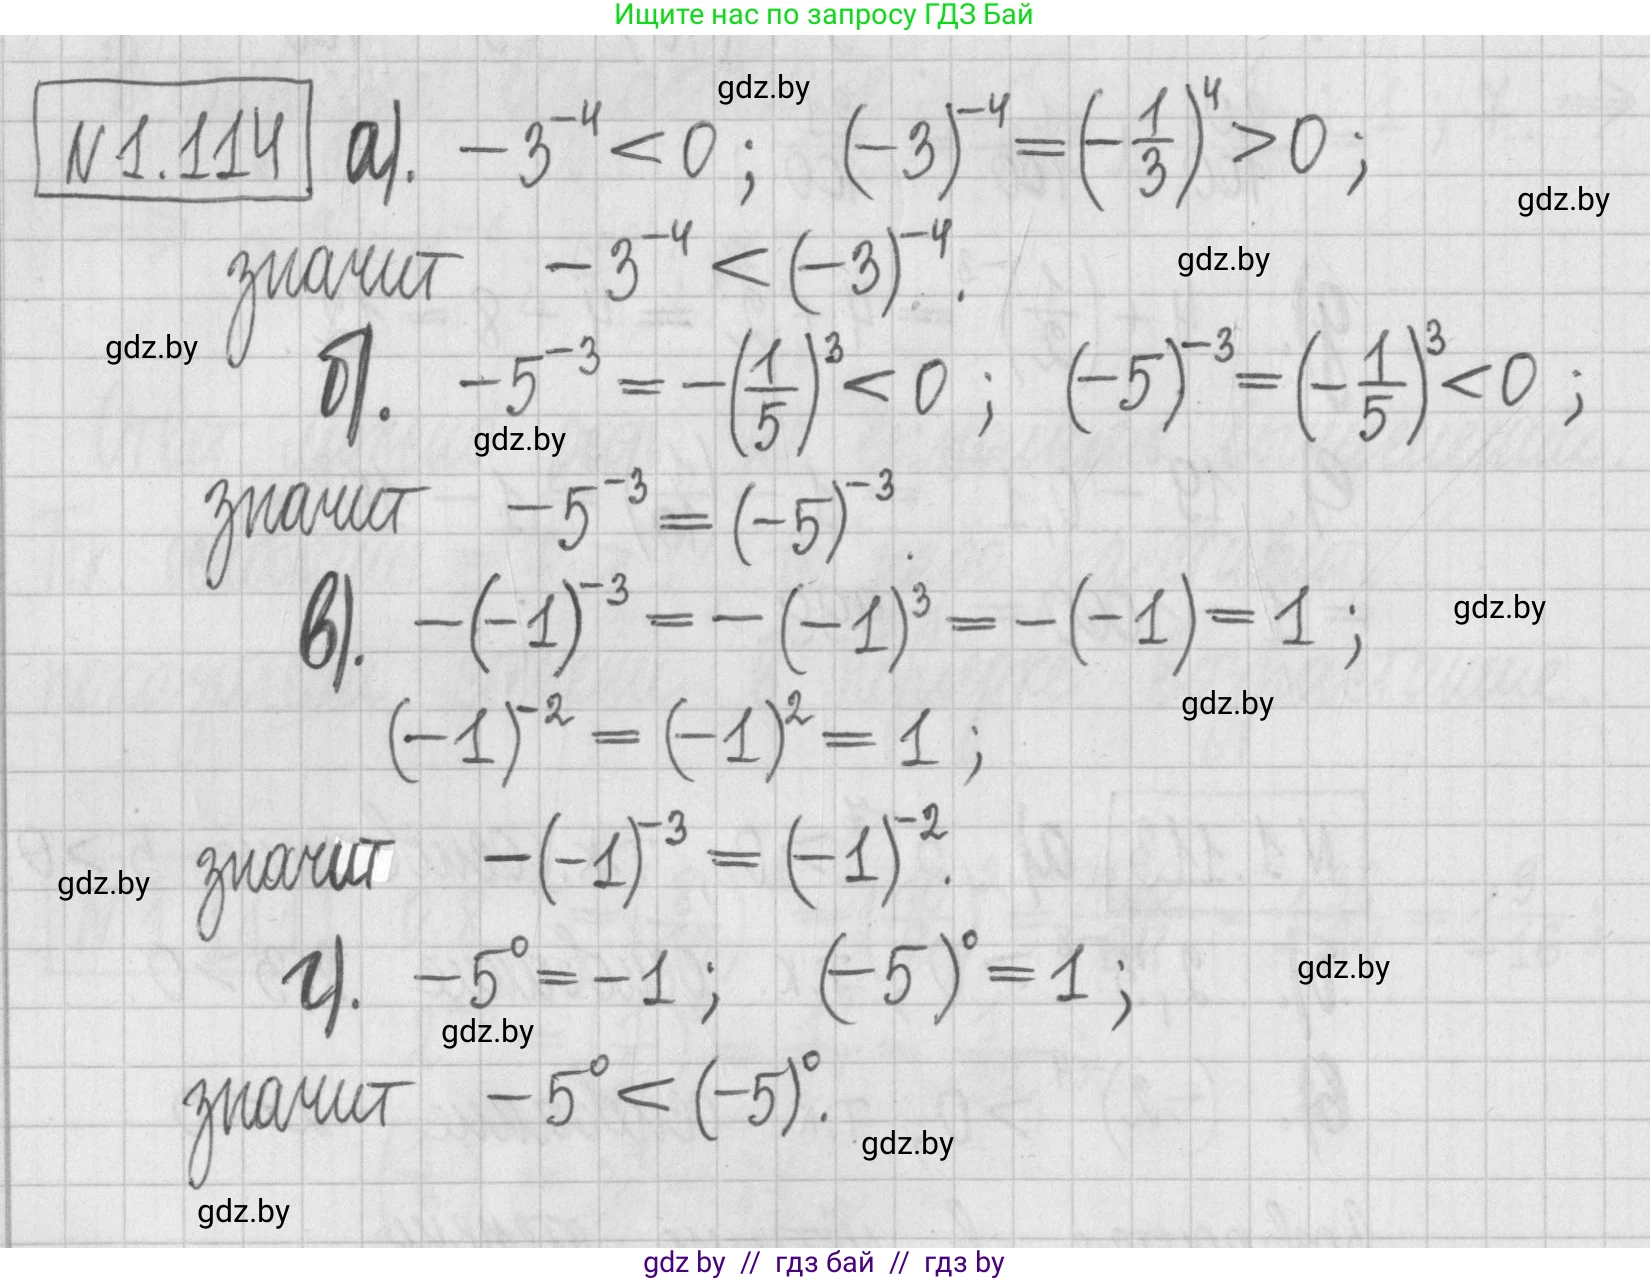 Ищите нас по запросу ГДЗ Бай
gdz.by
N 1.114 а). -3^{-4} < 0 ; (-3)^{-4} = (-1/3)^4 > 0 ;
gdz.by
значит -3^{-4} < (-3)^{-4}.
gdz.by
gdz.by
б). -5^{-3} = -(1/5)^3 < 0 ; (-5)^{-3} = (-1/5)^3 < 0 ;
gdz.by
значит -5^{-3} = (-5)^{-3}.
в). -(-1)^{-3} = -(-1)^3 = -(-1) = 1 ;
gdz.by
gdz.by
(-1)^{-2} = (-1)^2 = 1 ;
значит -(-1)^{-3} = (-1)^{-2}.
gdz.by
г). -5^0 = -1 ; (-5)^0 = 1 ;
gdz.by
gdz.by
значит -5^0 < (-5)^0.
gdz.by
gdz.by
gdz by // гдз бай // гдз by